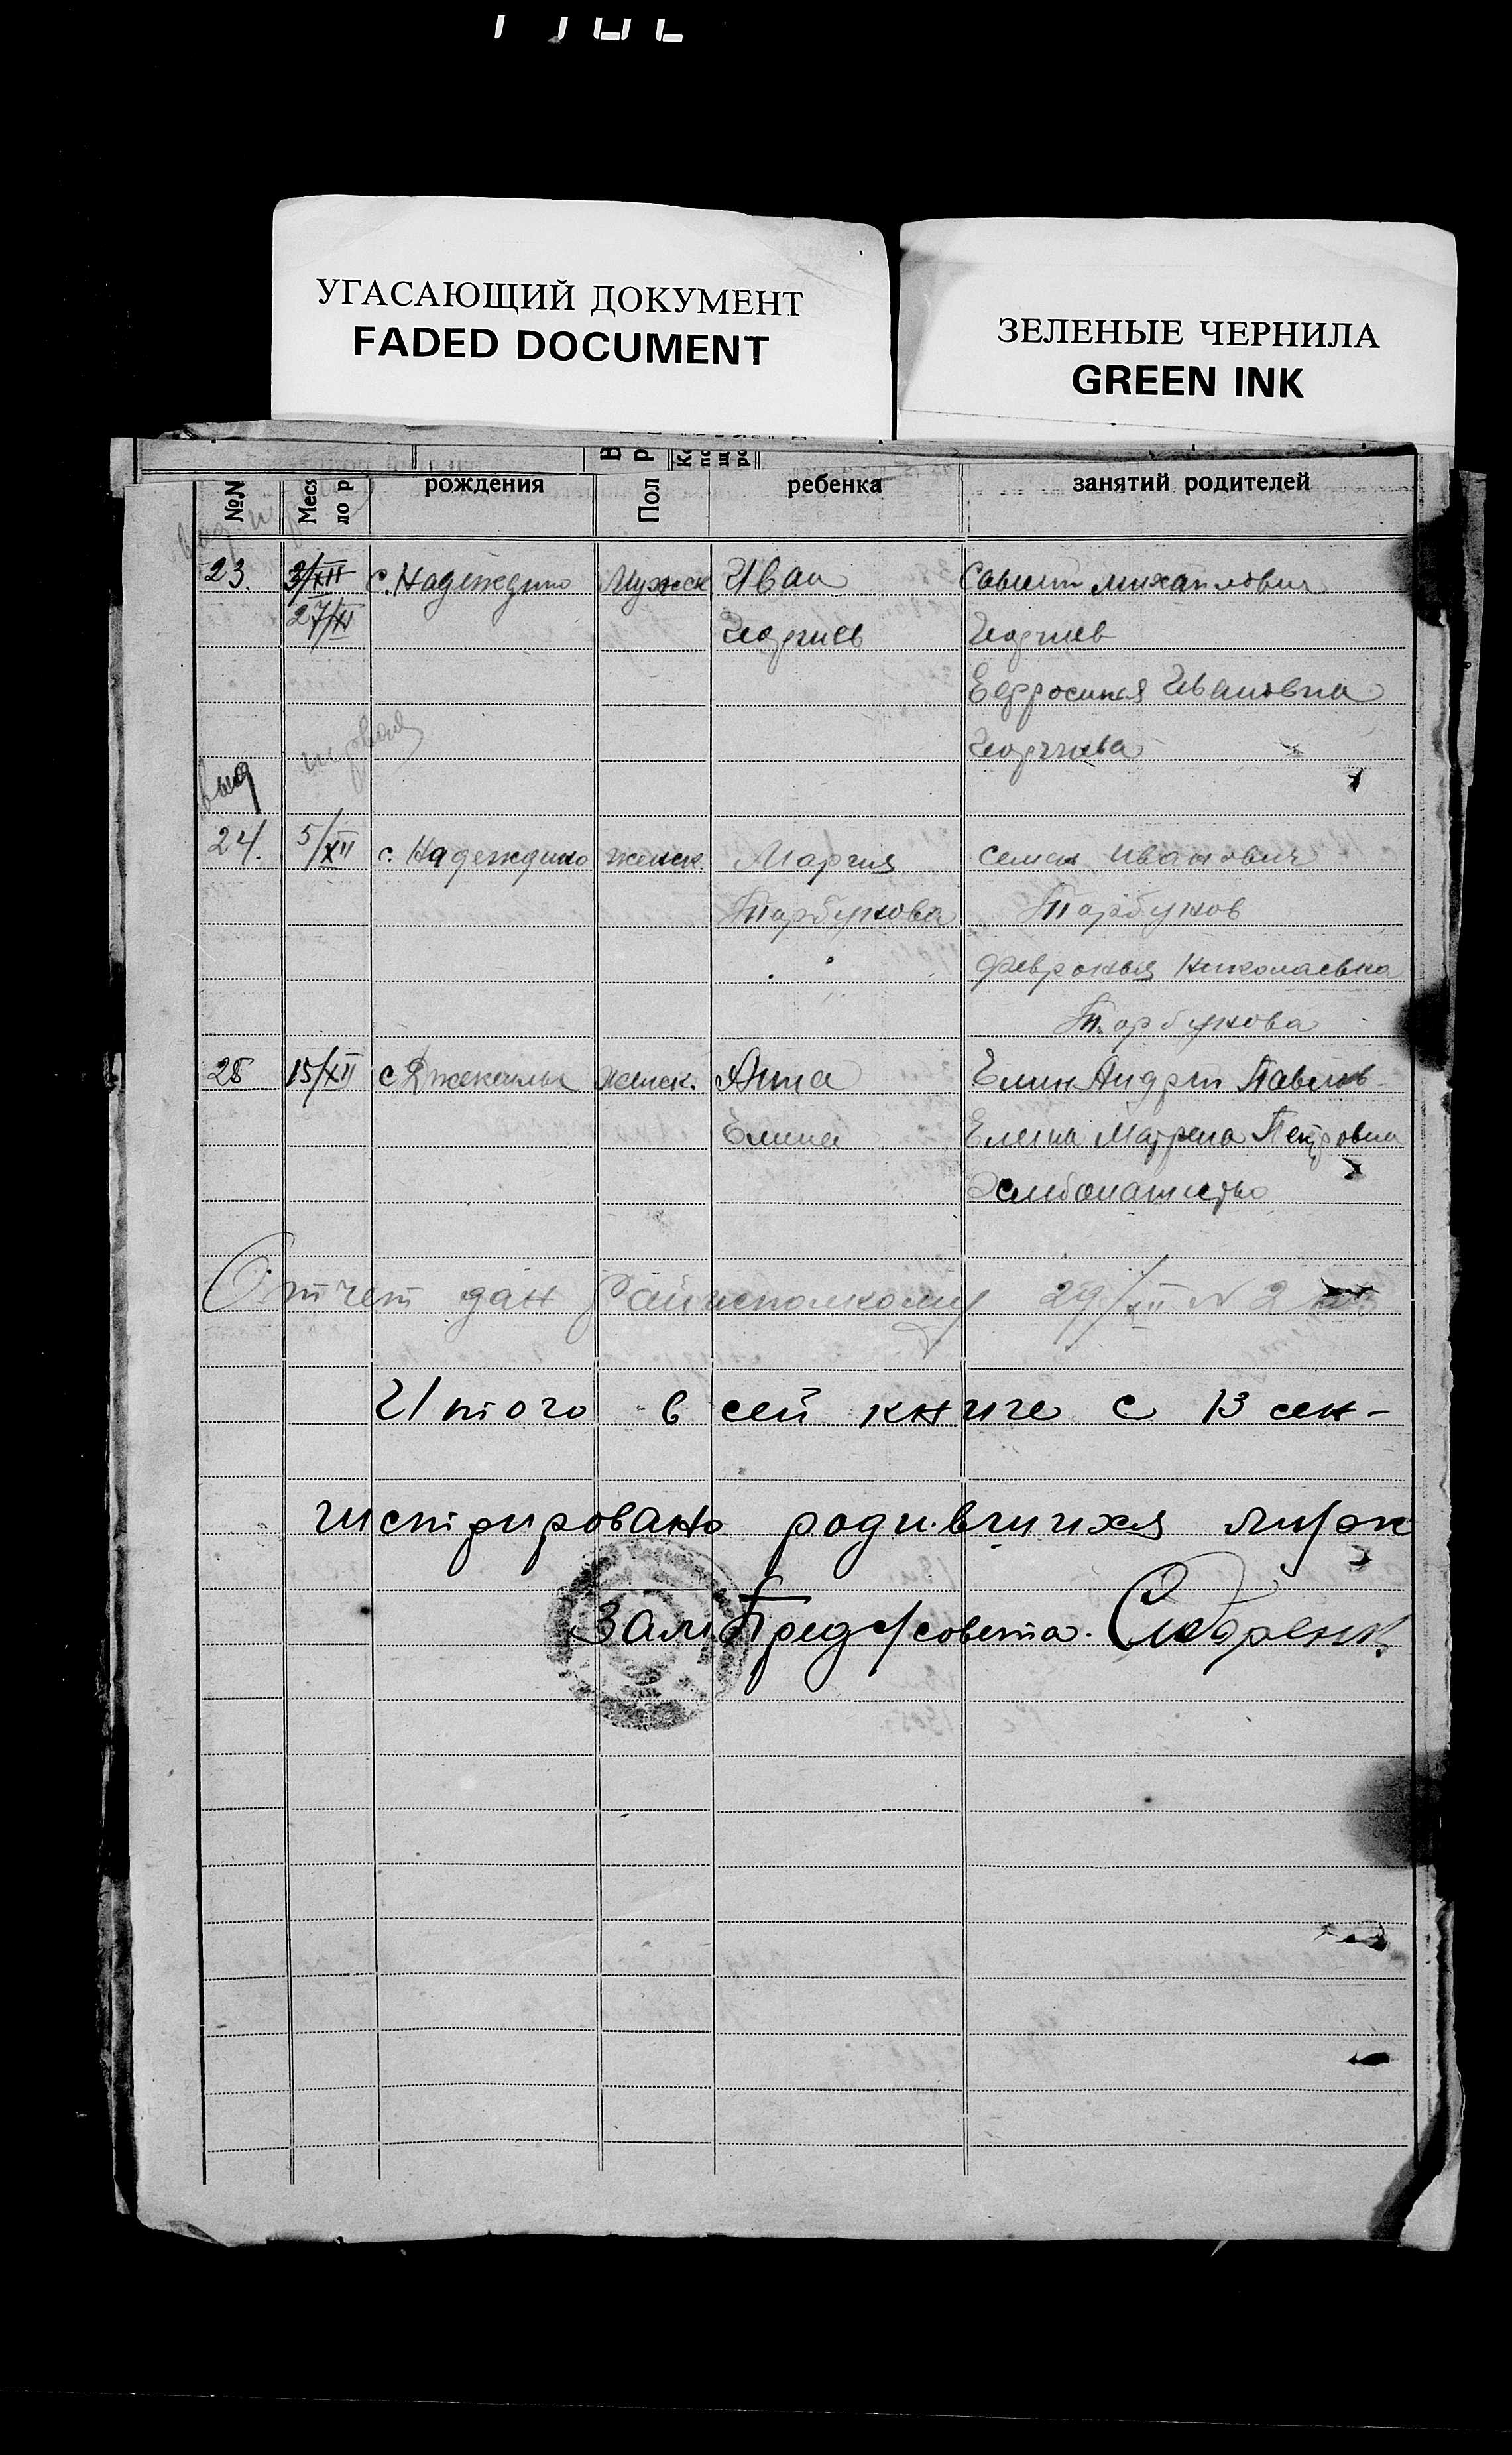 УГАСАЮЩИЙ ДОКУМЕНТ
FADED DOCUMENT
ЗЕЛЕНЫЕ ЧЕРНИЛА
GREEN INK
№№ Меся ло р рождения Пол ребенка занятий родителей
23. 3/XII с. Надеждино Мужск Иван Савелий Михайлович
27/XI Георгиев Георгиев
Ефросиния Ивановна
Георгиева
первая
выд
24. 5/XII с. Надеждино женск. Мария Семен Иванович
Тарбукова Тарбуков
Февронья Николаевна
Тарбукова
25 15/XII с женск. Анна Елин Андрей Павлов
Елина Елина Матрена Петровна
Отчет дан Райисполкому 29/XII № 2
Итого в сей книге с 13 сен-
гистрировано родившихся
Зам Пред с/совета.